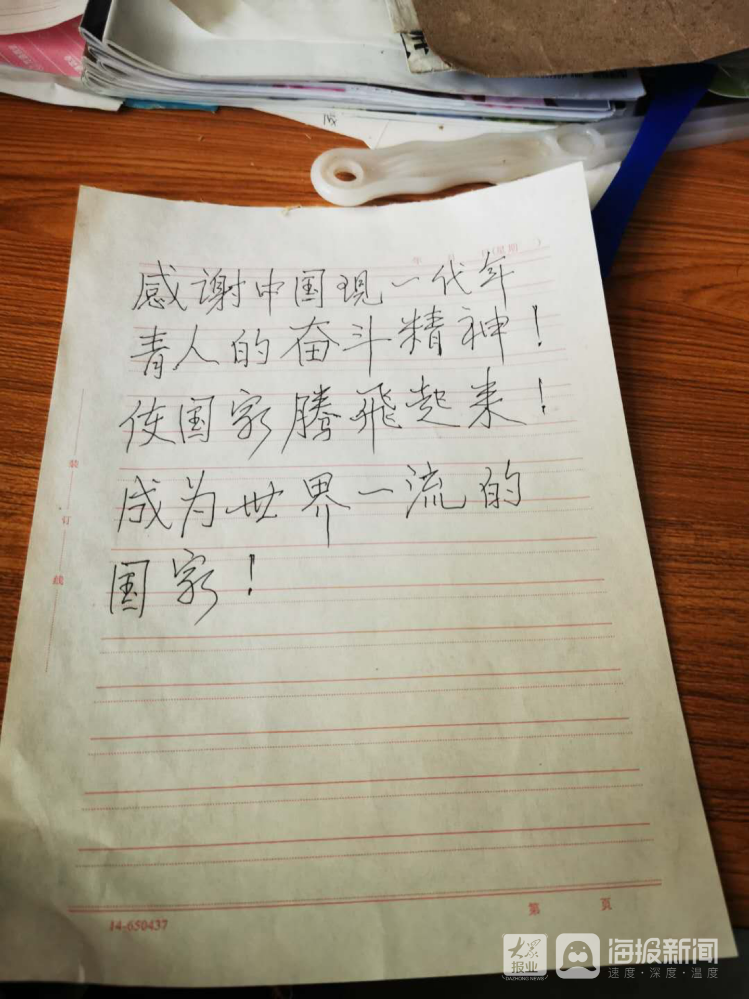 年 月 日(星期 )
感谢中国现一代年
青人的奋斗精神！
使国家腾飛起来！
成为世界一流的
国家！
装
订
线
14-650437
第 頁
大众
报业
DAZHONG NEWS
海报新闻
速度·深度·温度